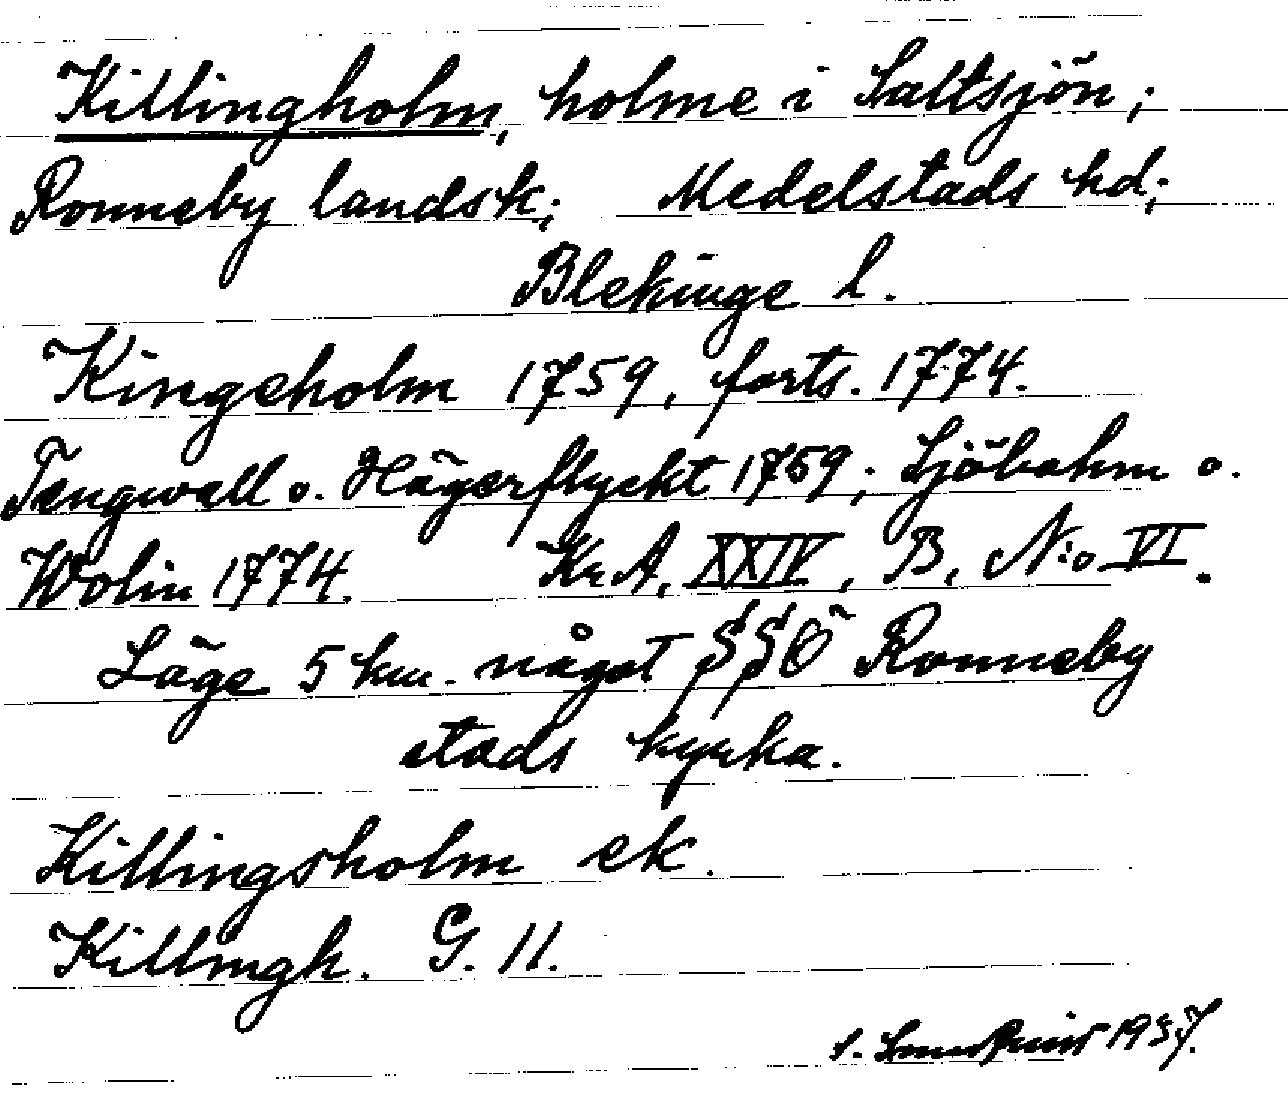 Killingholm, holme i Saltsjön;
Ronneby landsk; Medelstads hd;
Blekinge l.
Kingeholm 1759, forts. 1774.
Tengwall o. Hägerflyckt 1759; Sjöbohm o.
Wolin 1774. Kr.A. XXIV, B, N:o VI.
Läge 5 km. något SSÖ Ronneby
stads kyrka.
Killingsholm ek.
Killingh. G. 11.
1937.